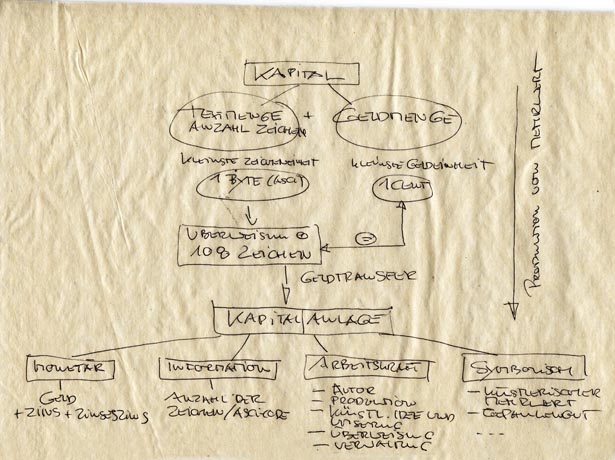 KAPITAL
TEXTMENGE
ANZAHL ZEICHEN
+
GELDMENGE
KLEINSTE ZEICHENEINHEIT
KLEINSTE GELDEINHEIT
1 BYTE (ASCI)
1 CENT
ÜBERWEISUNG
108 ZEICHEN
=
GELDTRANSFER
PRODUKTION VON MEHRWERT
KAPITALANLAGE
MONETÄR
GELD
+ ZINS + ZINSESZINS
INFORMATION
ANZAHL DER
ZEICHEN/ASCICODE
ARBEITSKRAFT
– AUTOR
– PRODUKTION
– KÜNSTL. IDEE UND
– ÜBERWEISUNG
– VERWALTUNG
SYMBOLISCH
– KÜNSTLERISCHER
MEHRWERT
– GEDANKENGUT
– ...